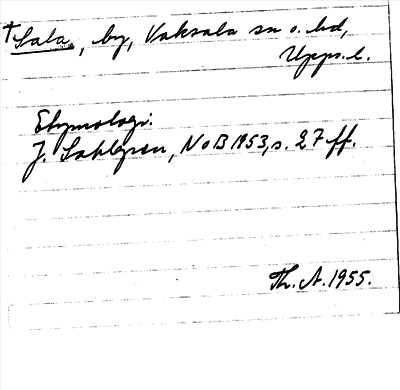 †Sala, by, Vaksala sn o. hd,
Upps. l.
Etymologi:
J. Sahlgren, NoB 1953, s. 27 ff.
Th. A. 1955.